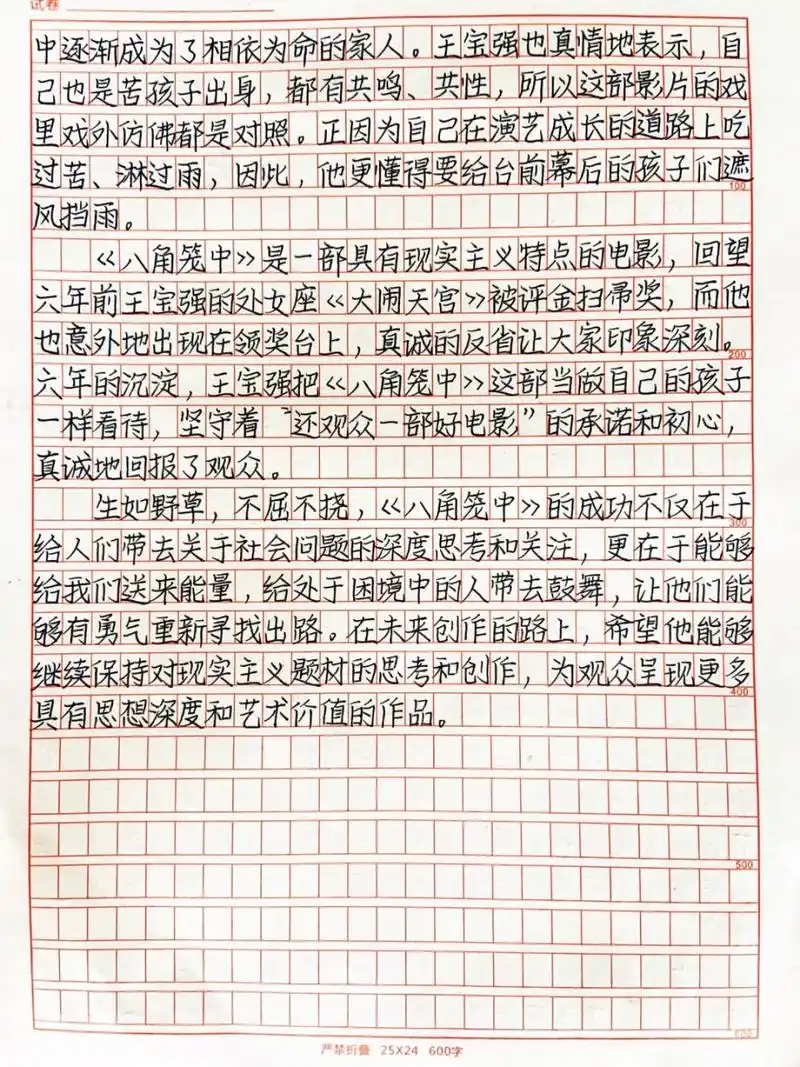 试卷
中逐渐成为了相依为命的家人。王宝强也真情地表示，自
己也是苦孩子出身，都有共鸣、共性，所以这部影片的戏
里戏外仿佛都是对照。正因为自己在演艺成长的道路上吃
过苦、淋过雨，因此，他更懂得要给台前幕后的孩子们遮
100
风挡雨。
《八角笼中》是一部具有现实主义特点的电影，回望
六年前王宝强的处女座《大闹天宫》被评金扫帚奖，而他
也意外地出现在领奖台上，真诚的反省让大家印象深刻。
200
六年的沉淀，王宝强把《八角笼中》这部当做自己的孩子
一样看待，坚守着“还观众一部好电影”的承诺和初心，
真诚地回报了观众。
生如野草，不屈不挠，《八角笼中》的成功不仅在于
300
给人们带去关于社会问题的深度思考和关注，更在于能够
给我们送来能量，给处于困境中的人带去鼓舞，让他们能
够有勇气重新寻找出路。在未来创作的路上，希望他能够
继续保持对现实主义题材的思考和创作，为观众呈现更多
400
具有思想深度和艺术价值的作品。
500
600
严禁折叠 25X24 600字